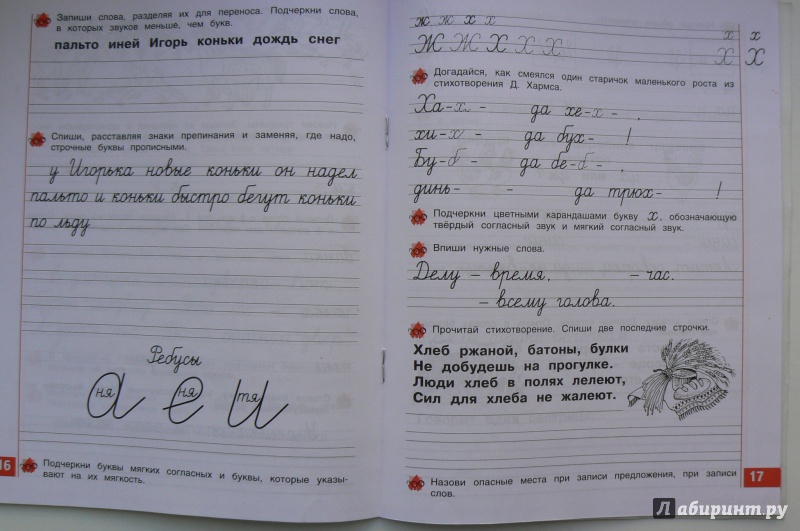 Запиши слова, разделяя их для переноса. Подчеркни слова,
в которых звуков меньше, чем букв.
пальто иней Игорь коньки дождь снег
Спиши, расставляя знаки препинания и заменяя, где надо,
строчные буквы прописными.
у Игорька новые коньки он надел
пальто и коньки быстро бегут коньки
по льду
Ребусы
а ня е ня и тя
Подчеркни буквы мягких согласных и буквы, которые указы-
вают на их мягкость.
16
ж ж х х х х
Ж Ж Х Х Х Х Х
Догадайся, как смеялся один старичок маленького роста из
стихотворения Д. Хармса.
Ха-х- - да хе-х- ,
хи-х- - да бух- !
Бу-б- - да бе-б- ,
динь- - да трюх- !
Подчеркни цветными карандашами букву х, обозначающую
твёрдый согласный звук и мягкий согласный звук.
Впиши нужные слова.
Делу – время, – час.
– всему голова.
Прочитай стихотворение. Спиши две последние строчки.
Хлеб ржаной, батоны, булки
Не добудешь на прогулке.
Люди хлеб в полях лелеют,
Сил для хлеба не жалеют.
Назови опасные места при записи предложения, при записи
слов.
17
Лабиринт.ру